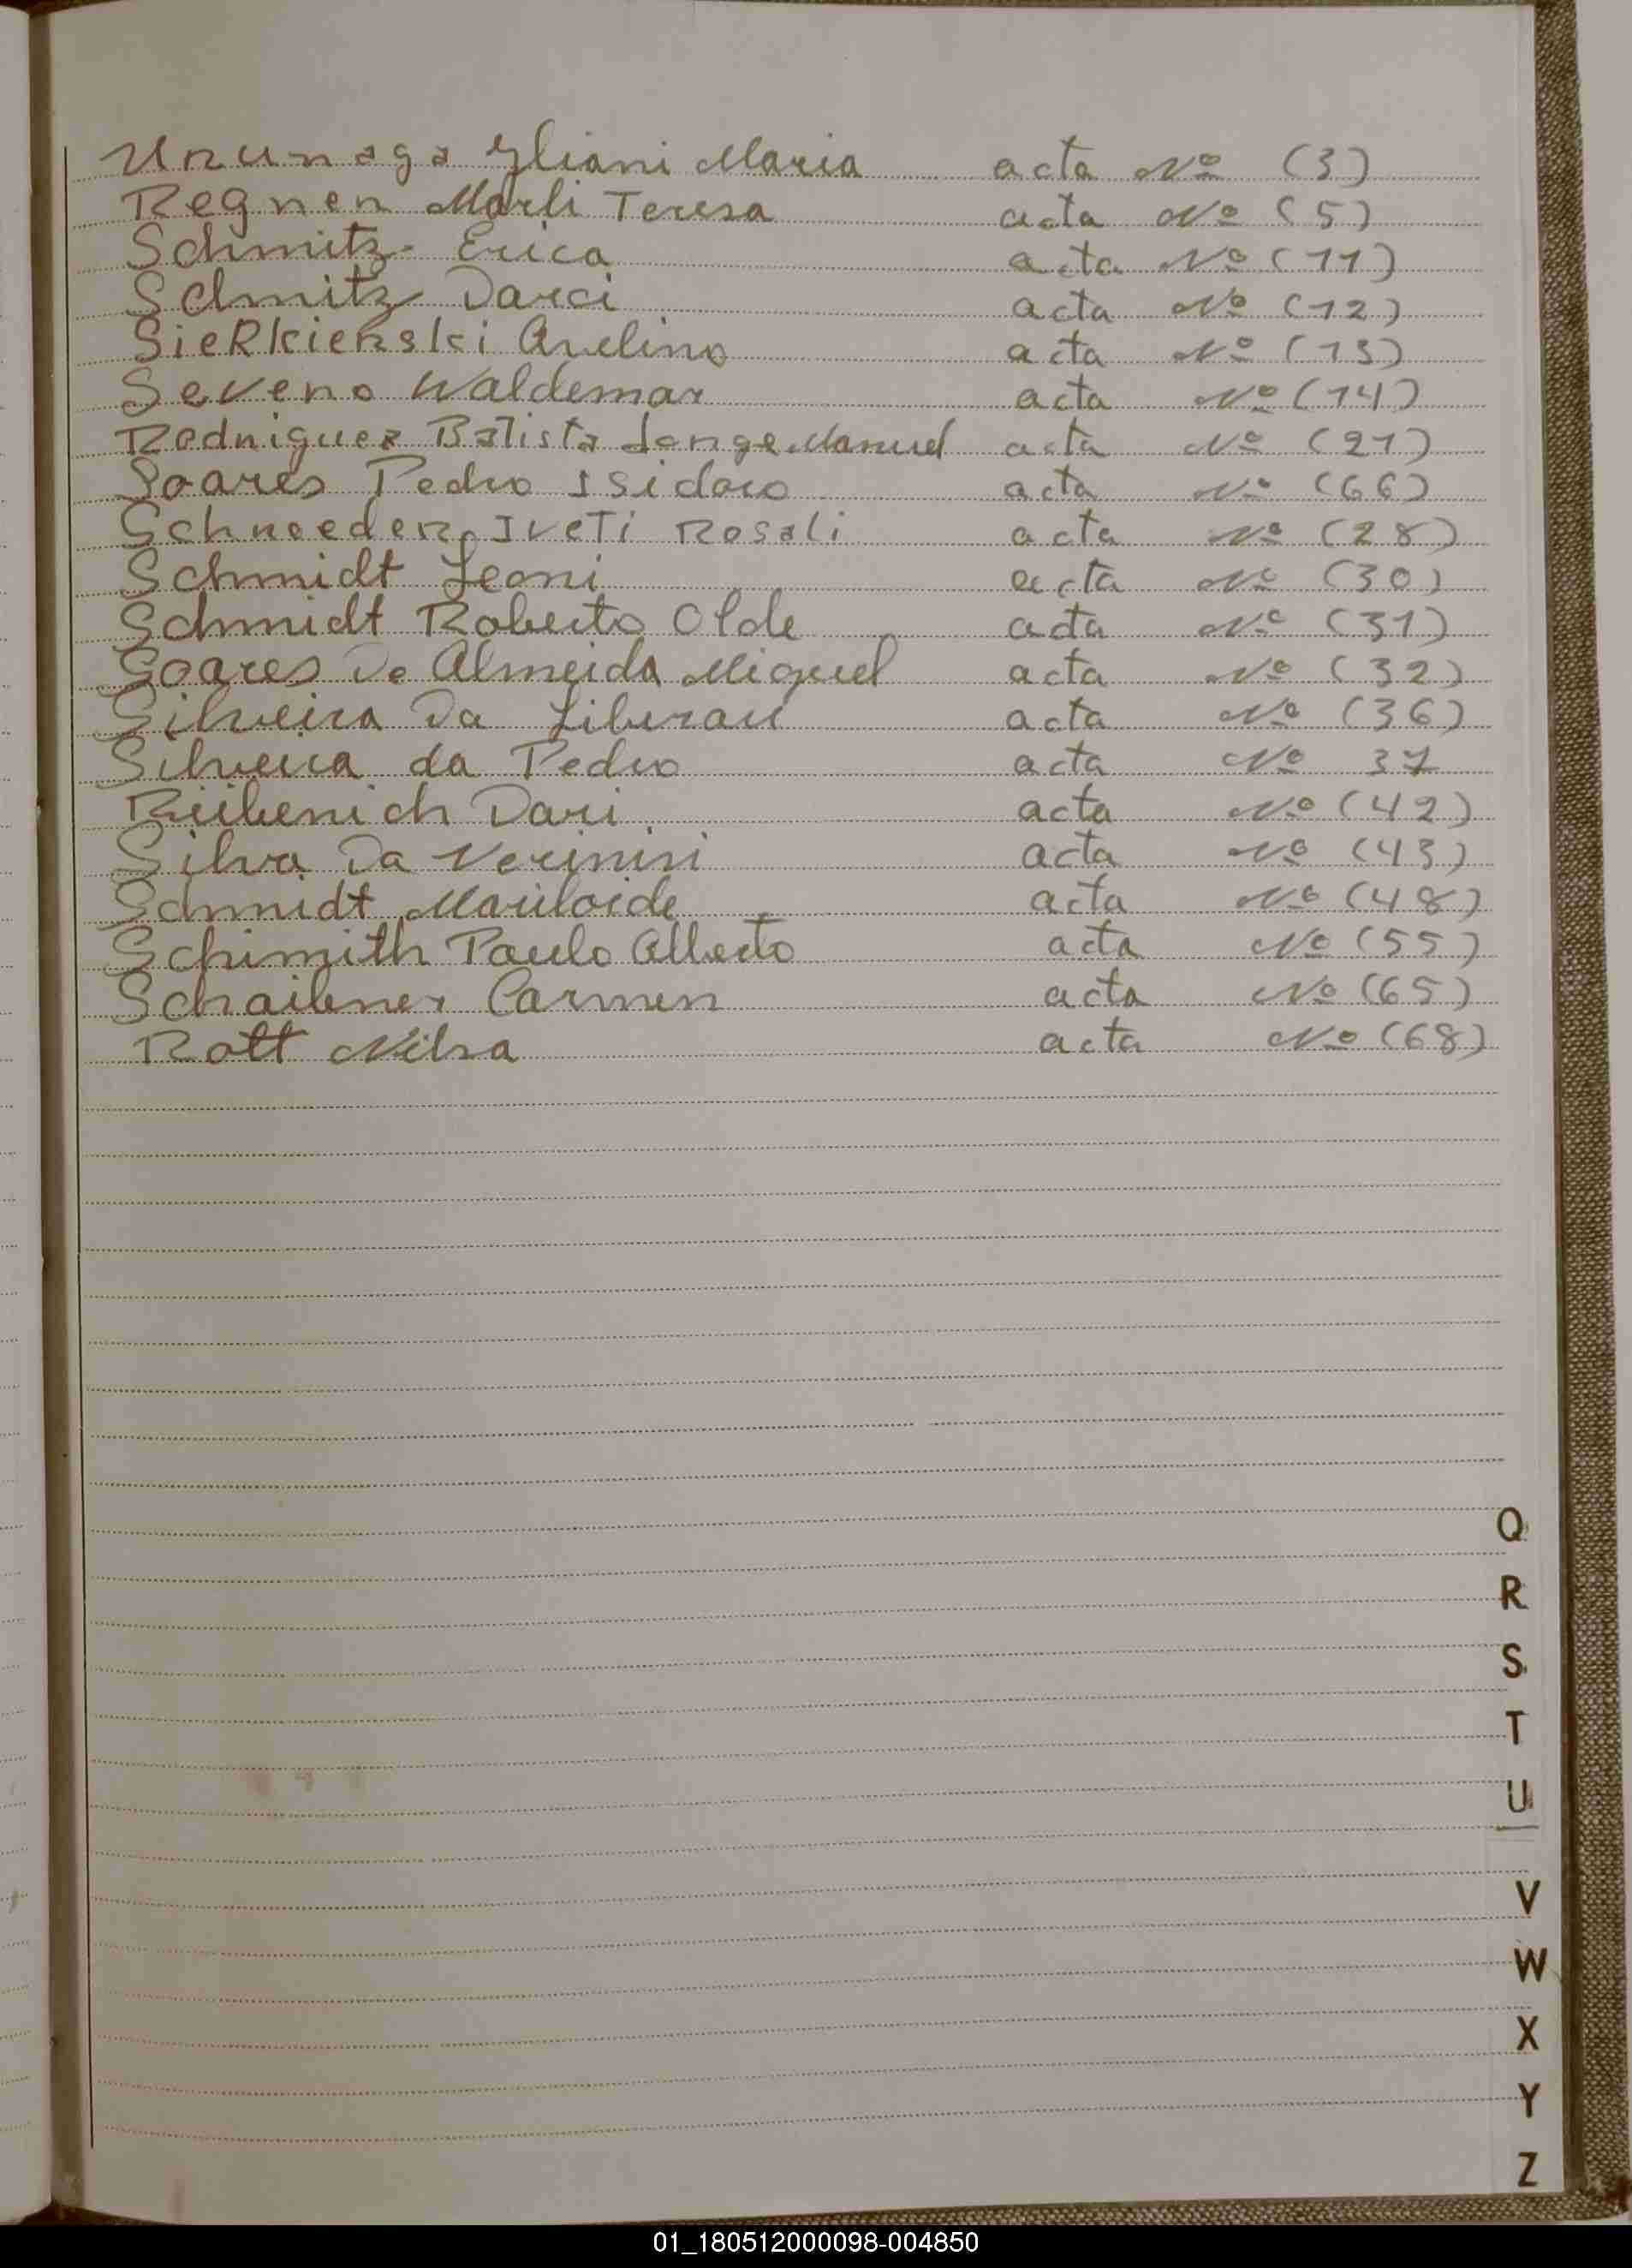 Urunaga Gliani Maria acta Nº (3)
Regner Marli Teresa acta Nº (5)
Schmitz Erica acta Nº (11)
Schmitz Darci acta Nº (12)
Sierkierski Avelino acta Nº (13)
Severo Waldemar acta Nº (14)
Rodriguez Batista Jorge Manuel acta Nº (21)
Soares Pedro Isidoro acta Nº (66)
Schneeder Iveti Rosali acta Nº (28)
Schmidt Leoni acta Nº (30)
Schmidt Roberto Olde acta Nº (31)
Soares De Almeida Miguel acta Nº (32)
Silveira Da Liberau acta Nº (36)
Silveira da Pedro acta Nº 37
Rübenich Dari acta Nº (42)
Silva Da acta Nº (43)
Schmidt Mariloide acta Nº (48)
Schimith Paulo Alberto acta Nº (55)
Schaibner Carmen acta Nº (65)
Rott Nilsa acta Nº (68)
Q
R
S
T
U
V
W
X
Y
Z
01_180512000098-004850